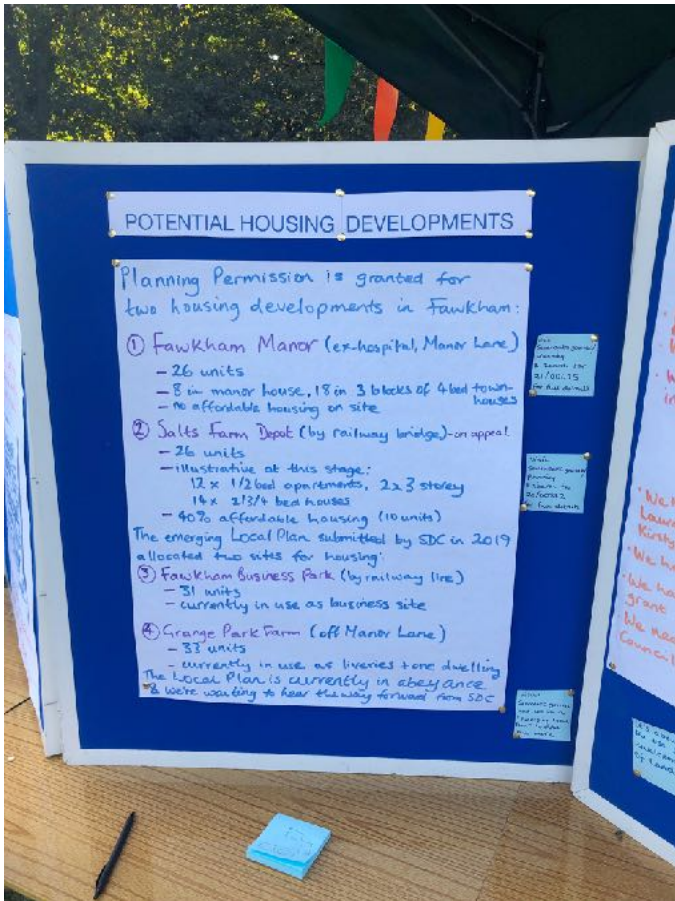 POTENTIAL HOUSING DEVELOPMENTS
Planning Permission is granted for
two housing developments in Fawkham:
① Fawkham Manor (ex-hospital, Manor Lane)
- 26 units
- 8 in manor house, 18 in 3 blocks of 4 bed town-
houses
- no affordable housing on site
② Salts Farm Depot (by railway bridge) - on appeal
- 26 units
- illustrative at this stage:
12 x 1/2 bed apartments, 2 x 3 storey
14 x 2/3/4 bed houses
- 40% affordable housing (10 units)
The emerging Local Plan submitted by SDC in 2019
allocated two sites for housing:
③ Fawkham Business Park (by railway line)
- 31 units
- currently in use as business site
④ Grange Park Farm (off Manor Lane)
- 33 units
- currently in use as liveries + one dwelling
The Local Plan is currently in abeyance
& we're waiting to hear the way forward from SDC
Visit
for full details
Visit
• We h
• We ha
• We ha
grant
• We nee
Council